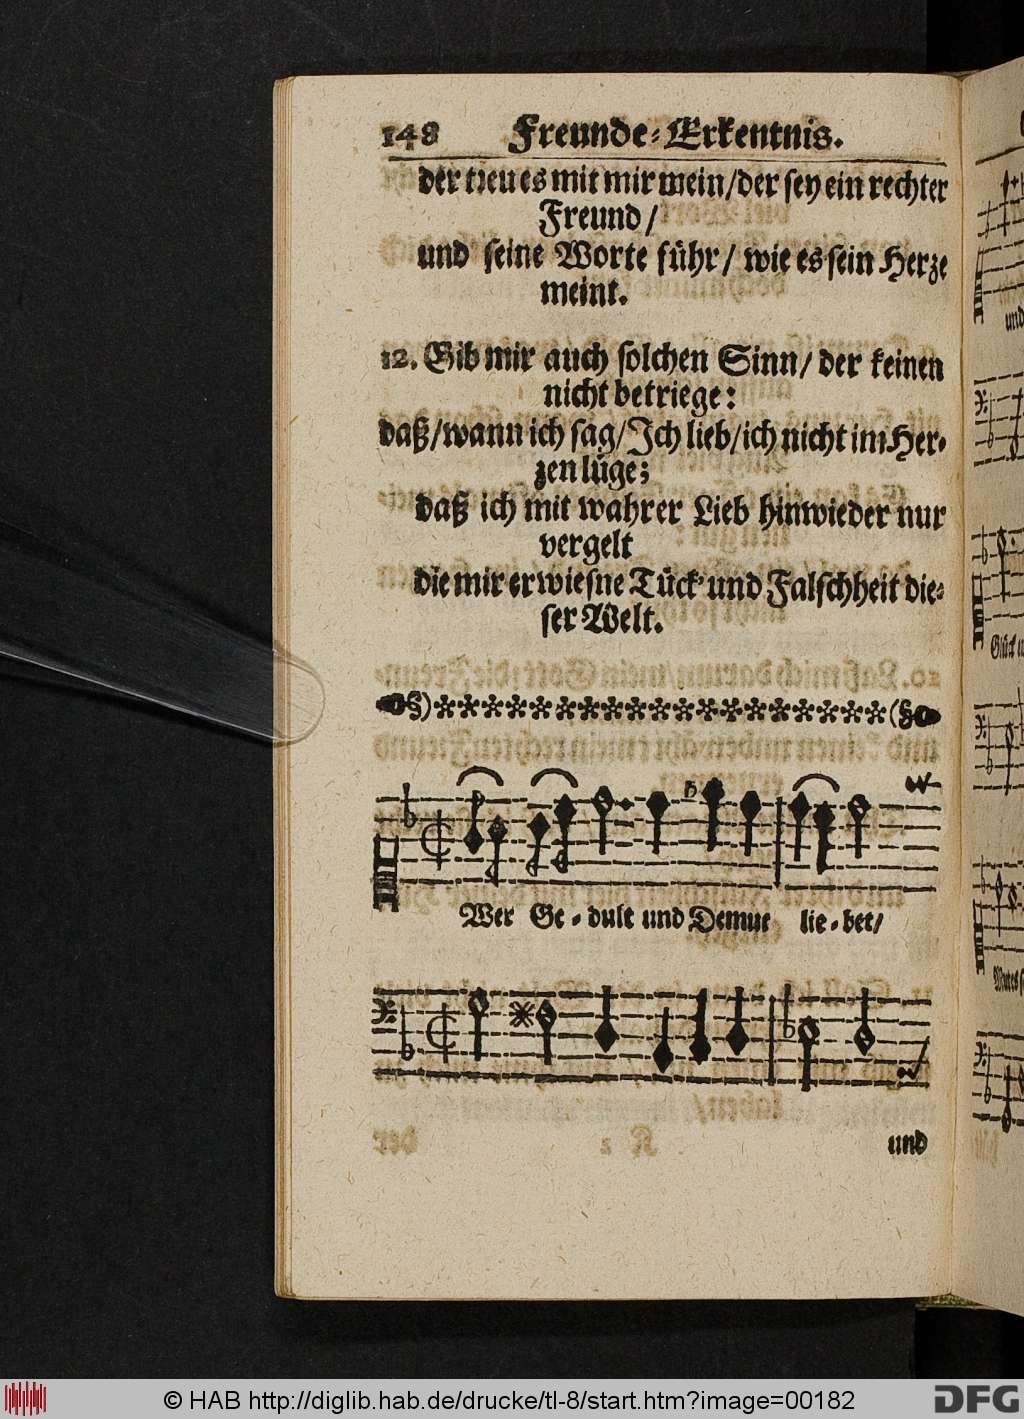 148 Freunde-Erkentnis.
der treu es mit mir mein/der sey ein rechter
Freund/
und seine Worte führ/ wie es sein Herze
meint.
12. Gib mir auch solchen Sinn/ der keinen
nicht betriege:
daß/wann ich sag/Ich lieb/ich nicht im Her-
zen lüge;
daß ich mit wahrer Lieb hinwieder nur
vergelt
die mir erwiesne Tück- und Falschheit die-
ser Welt.
Wer Ge-dult und Demut lie-bet/
und
© HAB http://diglib.hab.de/drucke/tl-8/start.htm?image=00182
DFG